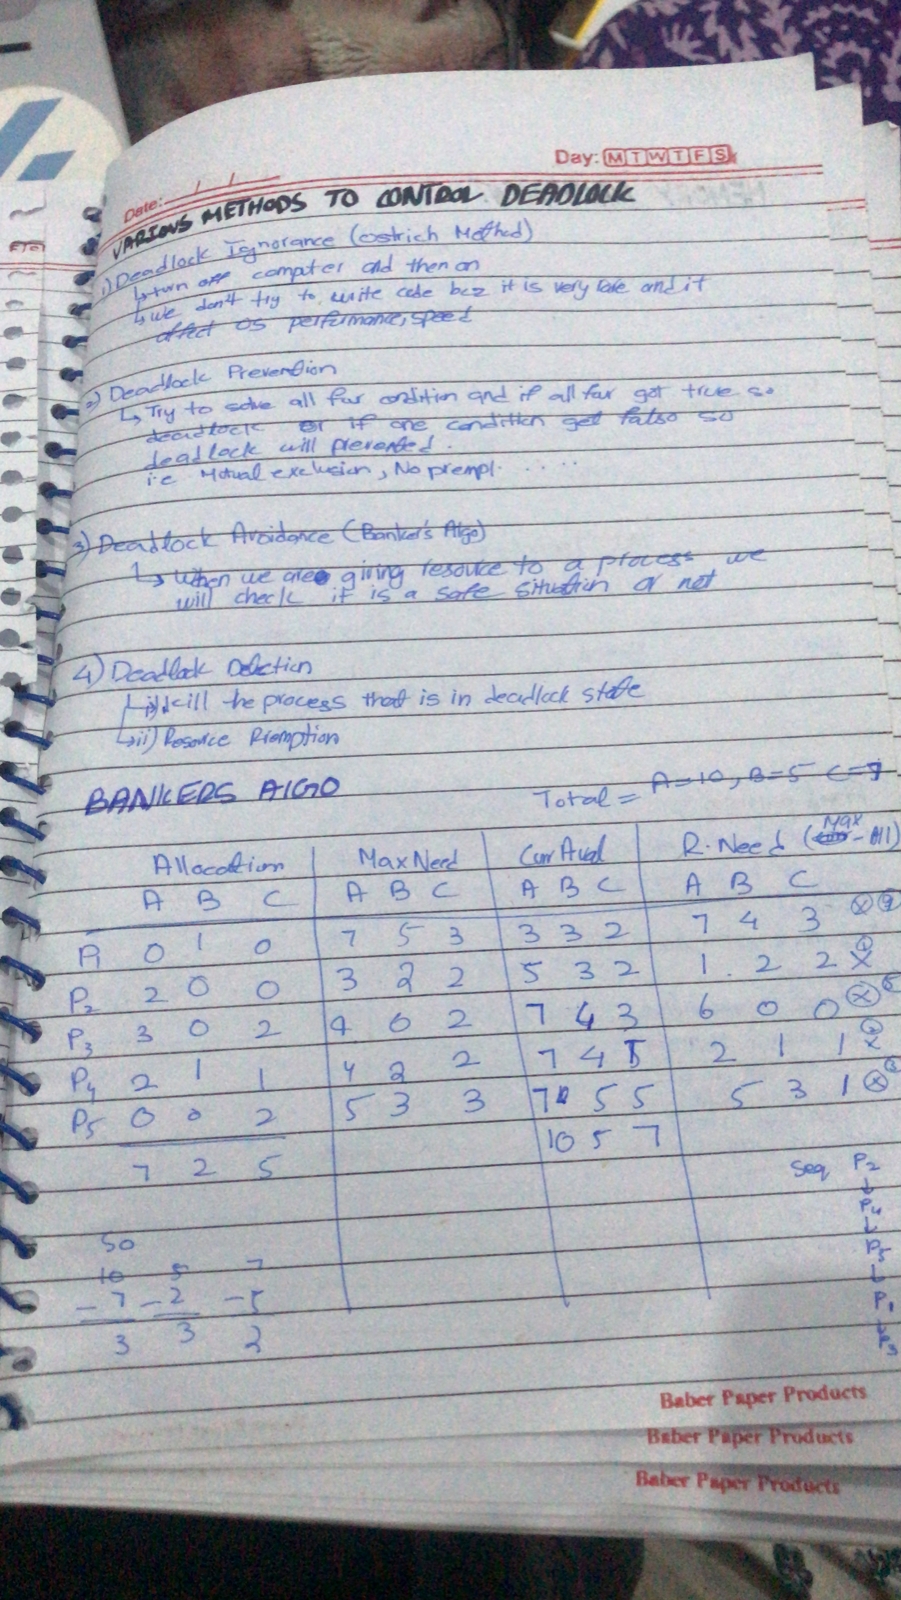 Day: M T W T F S
Date: / /
VARIOUS METHODS TO CONTROL DEADLOCK
1) Deadlock Ignorance (ostrich Method)
↳ turn off computer and then on
↳ we don't try to write code bcz it is very rare and it
affect OS performance, speed
2) Deadlock Prevention
↳ Try to solve all four condition and if all four got true so
deadlock or if one condition get false so
deadlock will prevented.
i.e Mutual exclusion, No prempt. . . . . .
3) Deadlock Avoidance (Banker's Algo)
↳ When we are giving resource to a process we
will check if is a safe situation or not
4) Deadlock Detection
↳ i) kill the process that is in deadlock state
↳ ii) Resource Premption
BANKERS AlGO Total = A=10, B=5 C=7
Allocation Max Need Curr Aval R. Need (Max - All)
A B C A B C A B C A B C
P1 0 1 0 7 5 3 3 3 2 7 4 3
P2 2 0 0 3 2 2 5 3 2 1. 2 2
P3 3 0 2 9 0 2 7 4 3 6 0 0
P4 2 1 1 4 2 2 7 4 5 2 1 1
P5 0 0 2 5 3 3 7 5 5 5 3 1
10 5 7
7 2 5
Seq P2
↓
P4
↓
P5
↓
P1
↓
P3
So
10 5 7
-7 -2 -5
3 3 2
Baber Paper Products
Baber Paper Products
Baber Paper Products